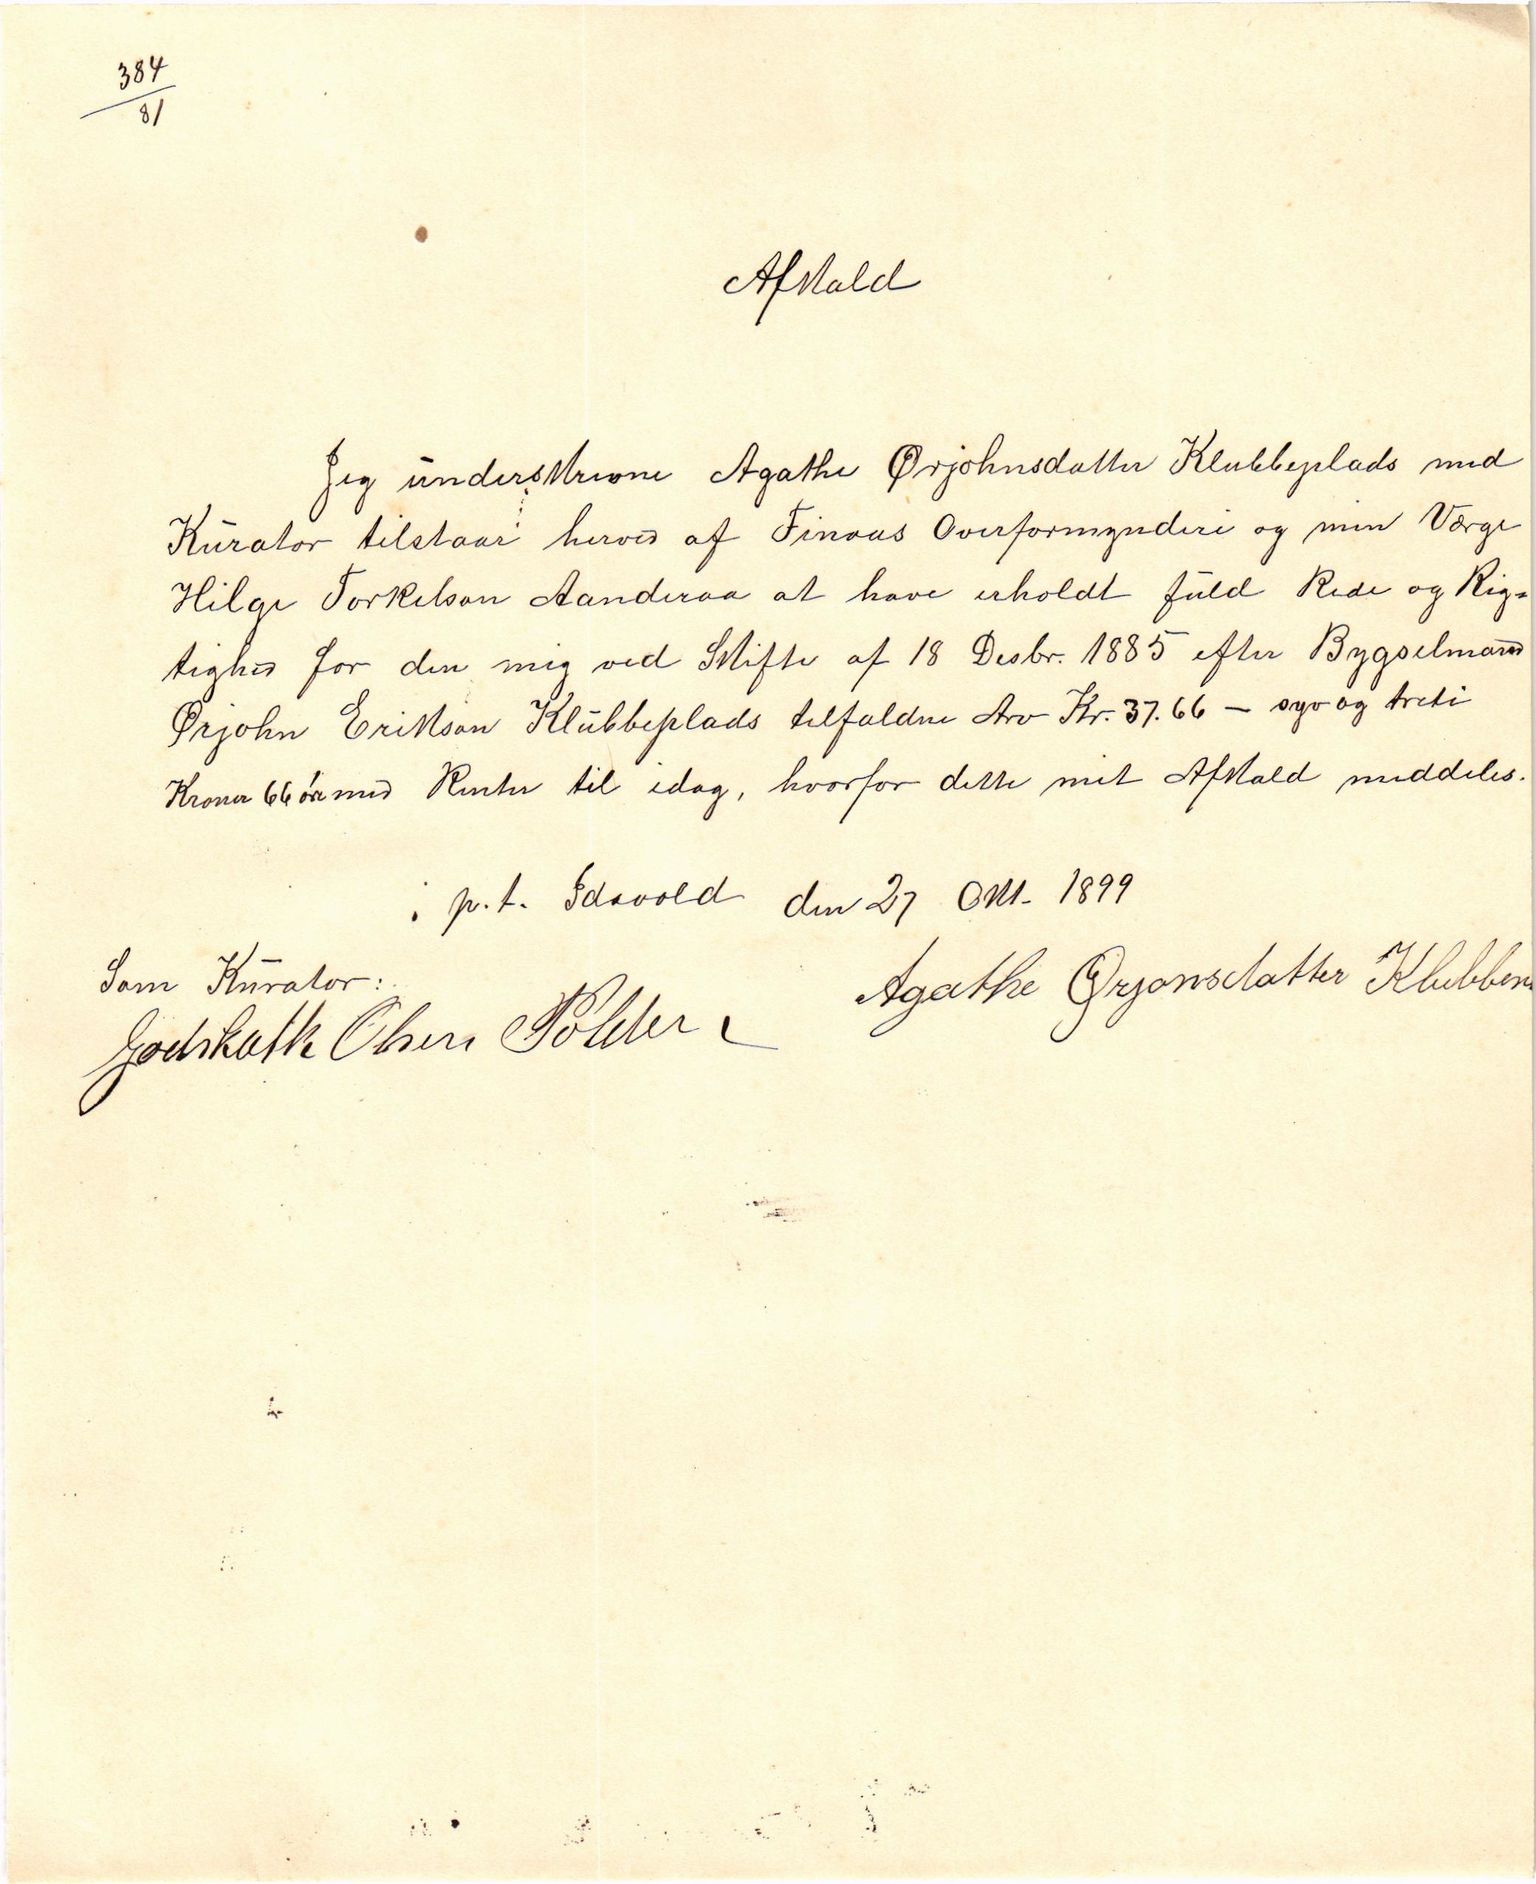 384
81
Afkald
Jeg underskrevne Agathe Ørjohnsdatter Klubbeplads med
Kurator tilstaar herved af Finaas Overformynderi og min Værge
Helge Torkelson Aanderaa at have erholdt fuld Rede og Rig-
tighed for den mig ved Skifte af 18 Desbr. 1885 efter Bygselmand
Ørjohn Erikson Klubbeplads tilfaldne Arv Kr. 37.66 — syv og treti
Kroner 66 øre med Renter til idag, hvorfor dette mit Afkald meddeles.
p.t. Idavold den 27 Okt. 1899
Som Kurator:
Agathe Ørjansdatter Klubben
Godskalk Olsen Polden